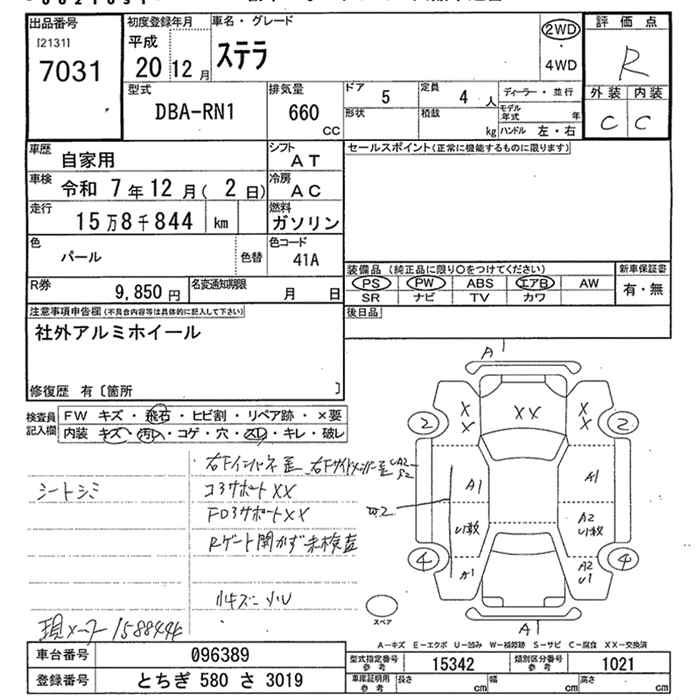 出品番号
[2131]
7031
初度登録年月
平成
20 12 月
車名・グレード
ステラ
2WD
・
4WD
評価点
R
外装 内装
C C
型式
DBA-RN1
排気量
660
CC
ドア 5
定員 4 人
形状
積載 kg
ディーラー・並行
モデル年式 年
ハンドル 左・右
車歴 自家用
シフト AT
セールスポイント(正常に機能するものに限ります)
車検 令和 7年 12月( 2日)
冷房 AC
走行 15万8千844 km
燃料 ガソリン
色 パール
色替
色コード 41A
R券 9,850 円
名変通知期限 月 日
装備品 (純正品に限り○をつけてください)
新車保証書
PS PW ABS エアB AW
有・無
SR ナビ TV カワ
後日品
注意事項申告欄(不具合内容等は具体的に記入して下さい)
社外アルミホイール
修復歴 有〔箇所 〕
検査員記入欄
FW キズ・飛石・ヒビ割・リペア跡・×要
内装 キズ・汚レ・コゲ・穴・スレ・キレ・破レ
シートシミ
コアサポートXX
Rゲート開かず未検査
現メーター158844
A
XX
X
X
X
X
2
2
A1
A1
W2
U1数
A2
U1数
4
4
A1
A2
U1
A1
スペア
A―キズ E―エクボ U―凹み W―補修跡 S―サビ C―腐食 XX―交換済
車台番号 096389
登録番号 とちぎ 580 さ 3019
型式指定番号 参考 15342
類別区分番号 参考 1021
車庫証明用 参考 長さ cm 幅 cm 高さ cm